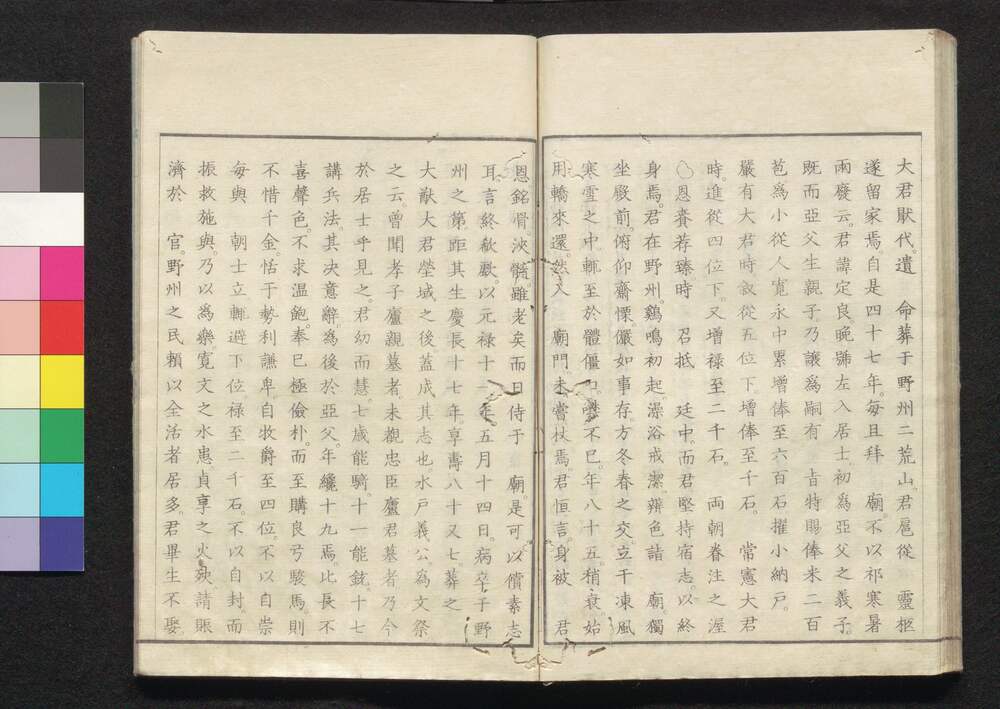 大君猒代。遺　命葬于野州二荒山。君扈從　靈柩
遂留家焉。自是四十七年。每旦拜　廟。不以祁寒暑
雨廢云。君諱定良。晚號左入居士。初爲亞父之義子。
既而亞父生親子。乃讓爲嗣。有　旨特賜俸米二百
苞。爲小從人。寬永中累增俸至六百石。擢小納戶。
嚴有大君時。敘從五位下。增俸至千石。　常憲大君
時。進從四位下。又增祿至二千石。　兩朝眷注之渥
〇恩賚荐臻。時　召抵　廷中。而君堅持宿志。以終
身焉。君在野州。鷄鳴初起。澡浴戒潔。辨色詣　廟。獨
坐殿前。俯仰齋慄。儼如事存。方冬春之交。立于凍風
寒雪之中。輒至於體僵口噤不已。年八十五。稍衰。始
用轎來還。然入　廟門。未嘗杖焉。君恒言。身被　君
恩。銘骨浹髓。雖老矣。而日侍于　廟。是可以償素志
耳。言終欷歔。以元祿十一年五月十四日。病卒于野
州之第。距其生慶長十七年。享壽八十又七。葬之
大猷大君塋域之後。蓋成其志也。水戶義公爲文祭
之云。曾聞孝子廬親墓者。未觀忠臣廬君墓者。乃今
於居士乎見之。君幼而慧。七歲能騎。十一能銃。十七
講兵法。其決意辭爲後於亞父。年纔十九焉。比長不
喜聲色。不求溫飽。奉己極儉朴。而至購良弓駿馬。則
不惜千金。恬于勢利。謙卑自牧。爵至四位。不以自崇
每與　朝士立。輒避下位。祿至二千石。不以自封。而
振救施與。乃以爲樂。寬文之水患。貞享之火殃。請賑
濟於　官。野州之民。賴以全活者居多。君畢生不娶。